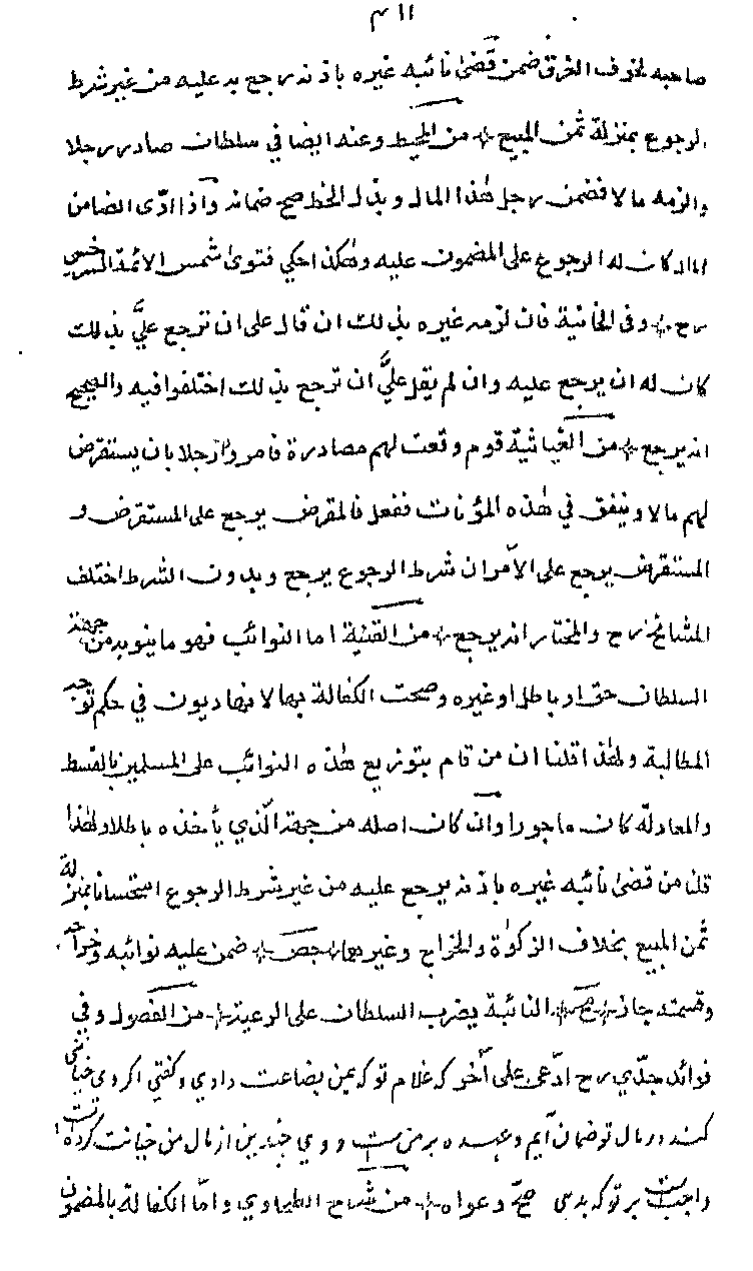 ٣١١
صاحبه لخوف الغرق ضمن قضى نائبه غيره باذنه رجع به عليه من غير شرط
الرجوع بمنزلة ثمن المبيع من المحيط وعنه ايضا في سلطان صادر رجلا
والزمه مالا فضمن رجل هذا المال وبذل الخط صح ضمانه واذا ادّى الضامن
المال كان له الرجوع على المضمون عليه وهكذا حكي فتوى شمس الائمة السرخسي
رح وفى الخانية فان لزمه غيره بذلك ان قال على ان ترجع عليَّ بذلك
كان له ان يرجع عليه وان لم يقل عليَّ ان ترجع بذلك اختلفوا فيه والصحيح
انه يرجع من الغياثية قوم وقعت لهم مصادرة فامروا رجلا بان يستقرض
لهم مالا وينفق في هذه المؤنات ففعل فالمقرض يرجع على المستقرض و
المستقرض يرجع على الآمر ان شرط الرجوع يرجع وبدون الشرط اختلف
المشائخ رح والمختار انه يرجع من القنية اما النوائب فهو ما ينوبه من جهة
السلطان حق او باطل او غيره وصحت الكفالة بها لانها ديون في حكم توجه
المطالبة ولهذا قلنا ان من قام بتوزيع هذه النوائب على المسلمين بالقسط
والمعادلة كان ماجورا وان كان اصله من جهة الّذي يأخذه باطلا ولهذا
قلنا من قضى نائبه غيره باذنه يرجع عليه من غير شرط الرجوع استحسانا بمنزلة
ثمن المبيع بخلاف الزكوٰة والخراج وغيرهما جص ضمن عليه نوائبه وخراجه
وقسمته جاز صح النائبة يضرب السلطان على الرعية من الفصول وفي
فوائد جدّي رح ادّعى على آخر كه غلام توكه بمن بضاعت دادي وگفتي اگر وى خيانتي
كند در مال تو ضمان آيم وعهده بر من ست ووي چندين از مال من خيانت كرده است
واجب ست بر تو كه بدهى صحّ دعواه من شرح الطحاوي وامّا الكفالة بالمضمون